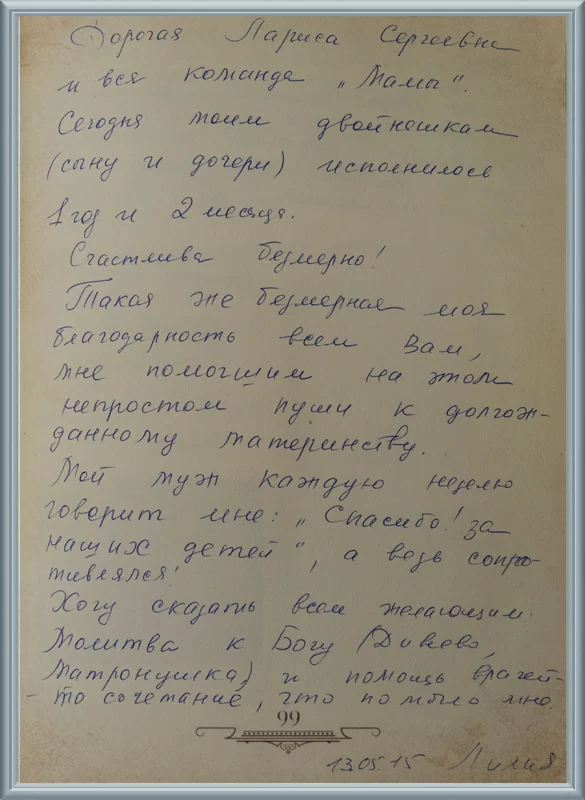 Дорогая Лариса Сергеевна
и вся команда „Мамы".
Сегодня моим двойняшкам
(сыну и дочери) исполнилось
1 год и 2 месяца.
Счастлива безмерно!
Такая же безмерная моя
благодарность всем Вам,
мне помогшим на этом
непростом пути к долгож-
данному материнству.
Мой муж каждую неделю
говорит мне: „Спасибо! за
наших детей", а ведь сопро-
тивлялся!
Хочу сказать всем желающим.
Молитва к Богу (Дивеево,
Матронушка) и помощь врачей-
то сочетание, что помогло мне.
99
13.05.15 Лилия